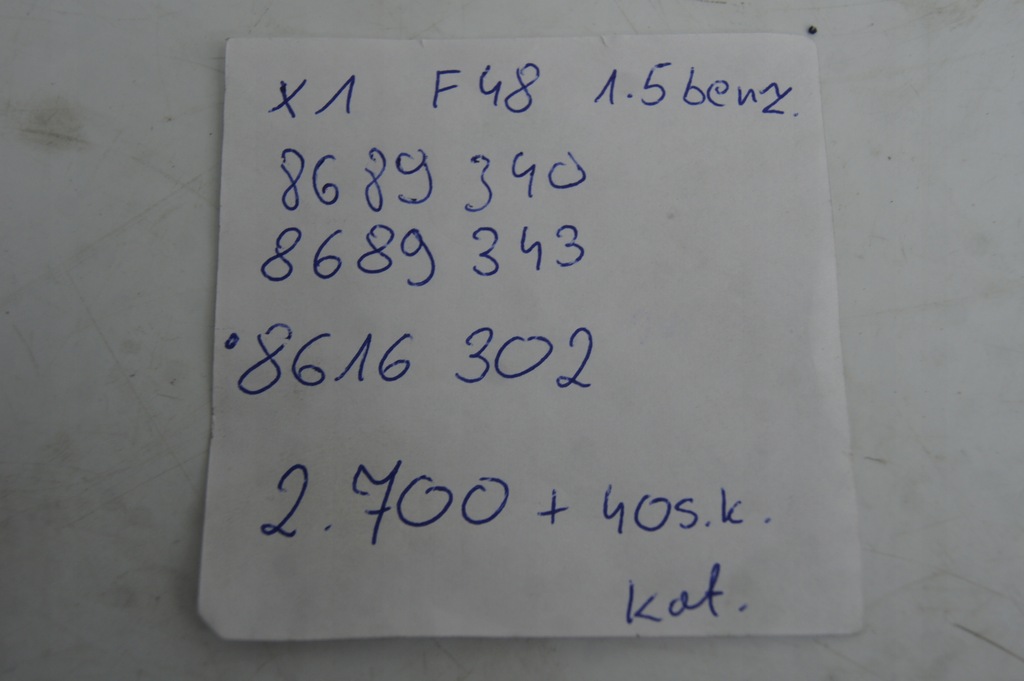 X1 F48 1.5 benz.
8689 340
8689 343
8616 302
2.700 + 40 s.k.
kat.